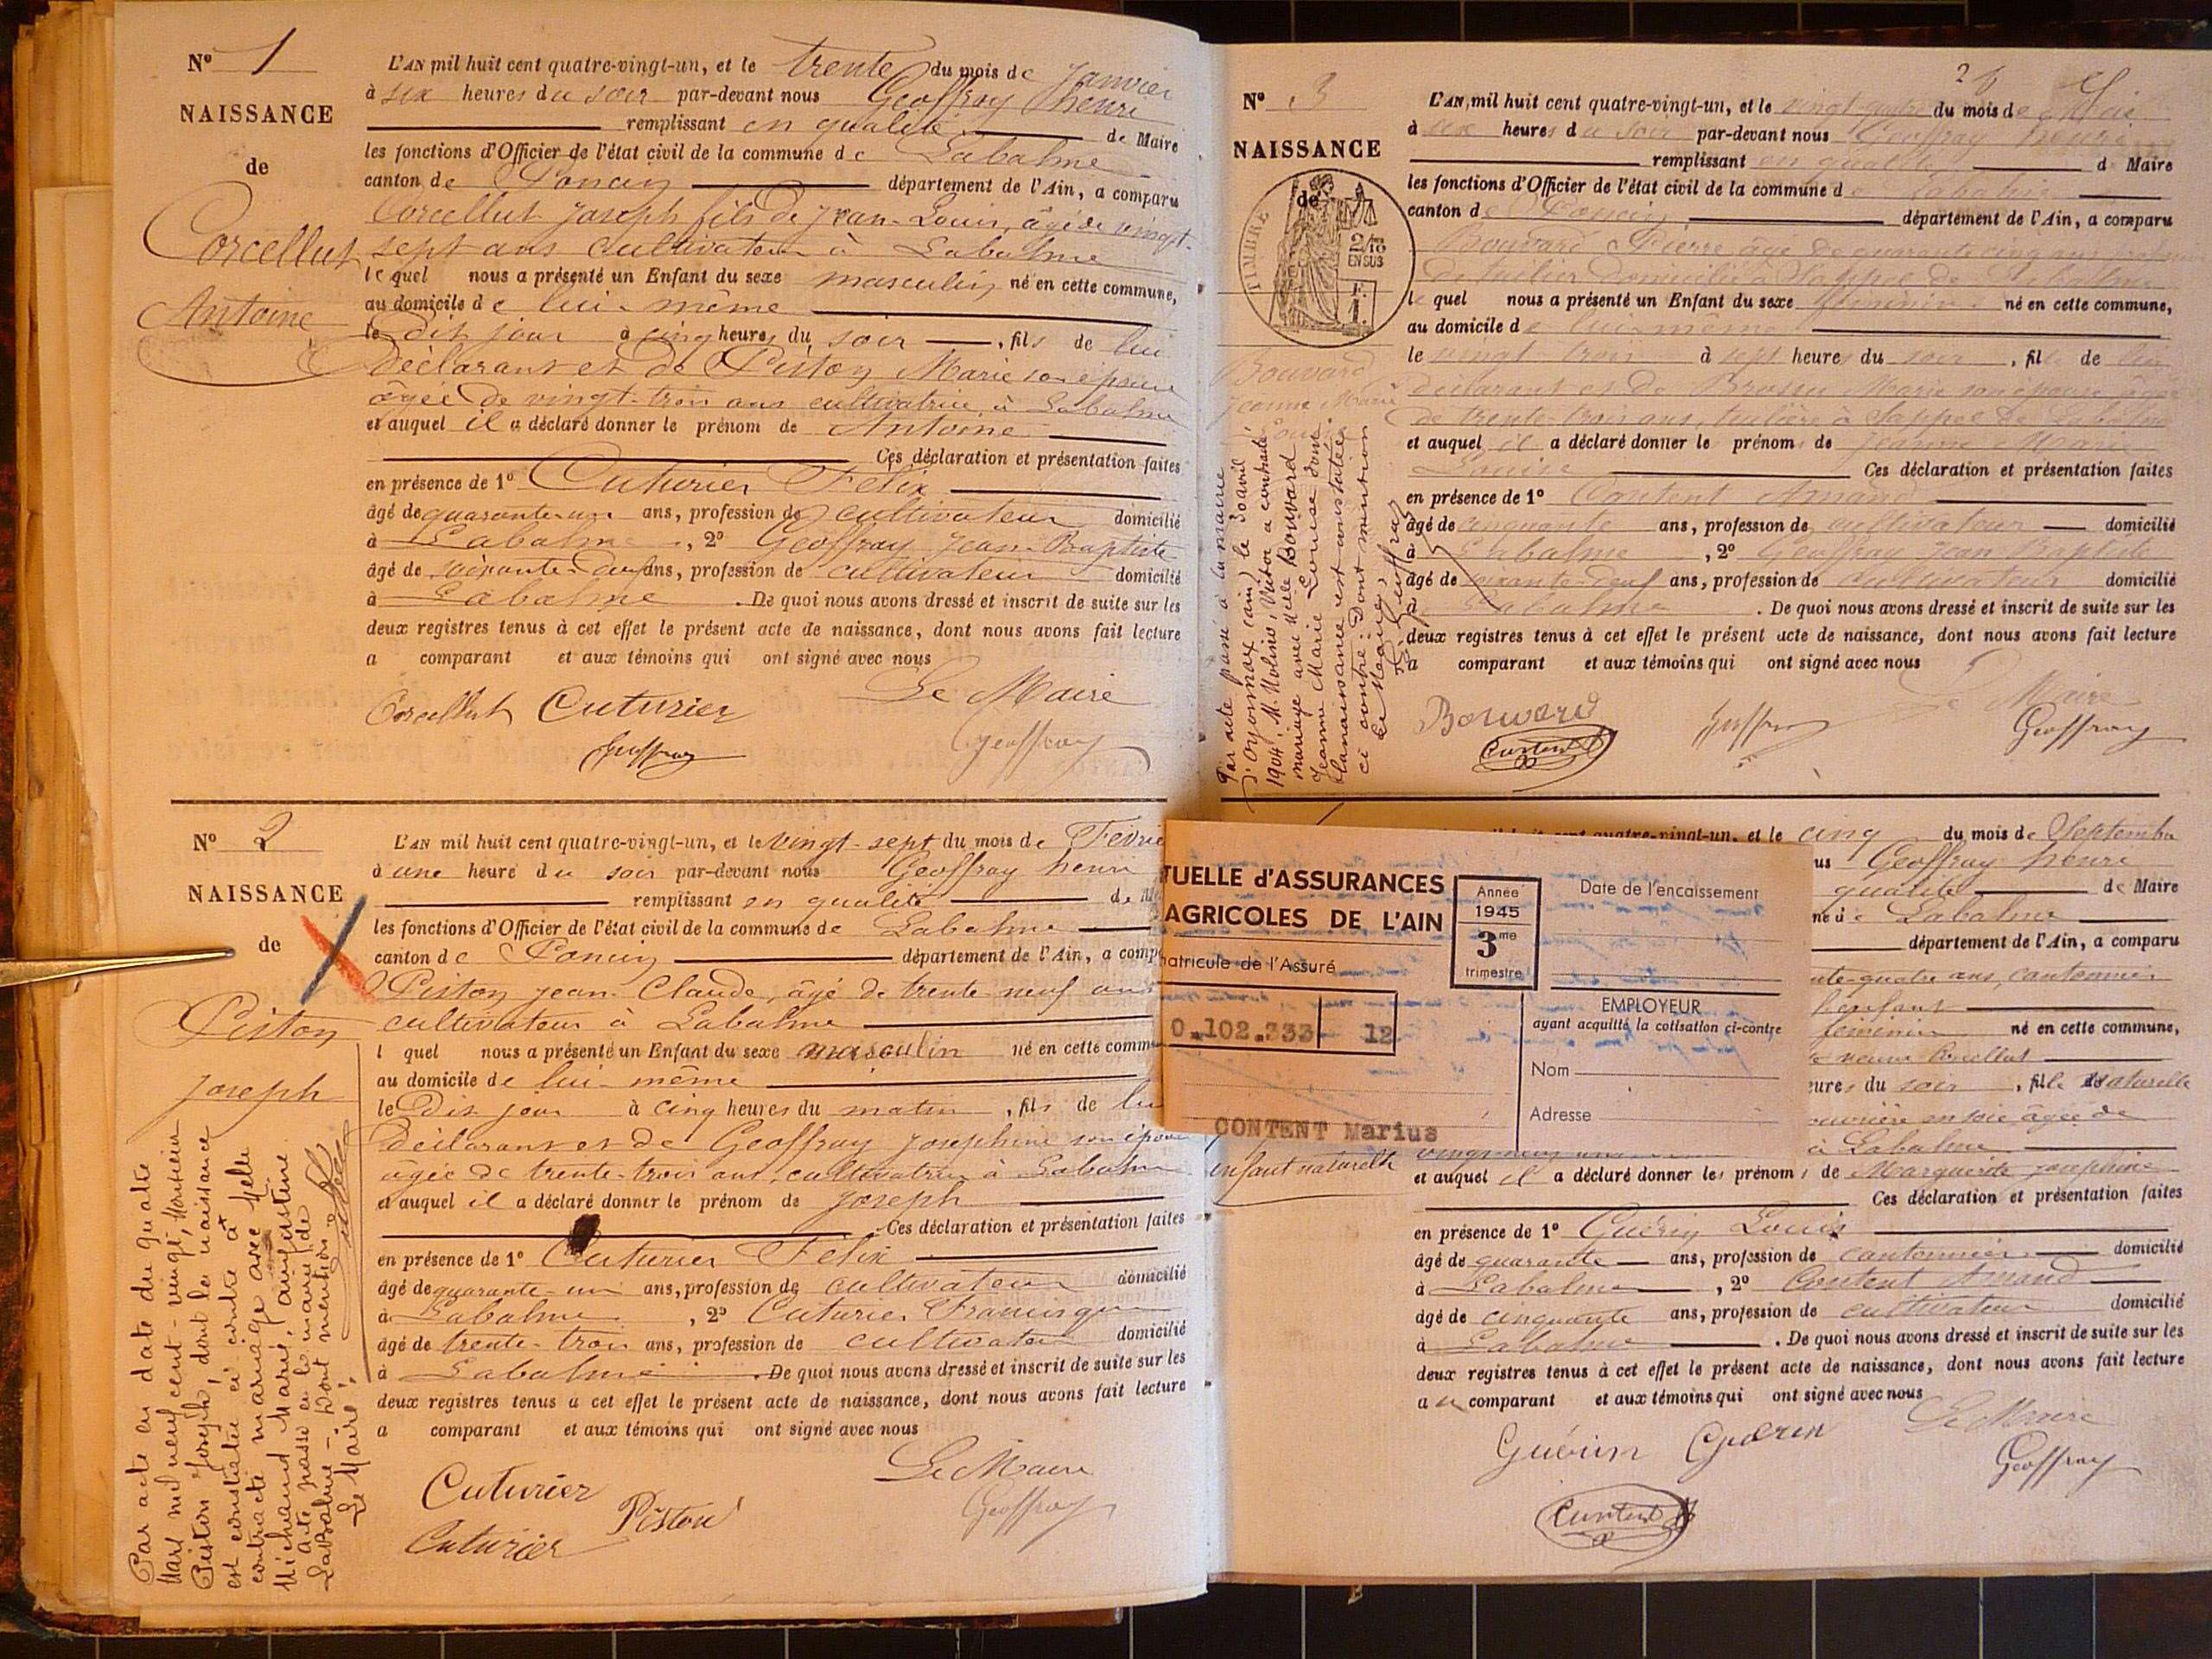 N° 1
NAISSANCE
de
Corcellut
Antoine
L'AN mil huit cent quatre-vingt-un, et le trente du mois de Janvier
à six heures du soir par-devant nous Geoffray henri
remplissant en qualité de Maire
les fonctions d'Officier de l'état civil de la commune de Labalme
canton de Poncin département de l'Ain, a comparu
Corcellut Joseph fils de Jean-Louis, âgé de vingt-
sept ans cultivateur à Labalme
lequel nous a présenté un Enfant du sexe masculin né en cette commune,
au domicile de lui-même
le dit jour à cinq heures du soir , fils de lui
déclarant et de Piston Marie son épouse
âgée de vingt-trois ans cultivatrice à Labalme
et auquel il a déclaré donner le prénom de Antoine
Ces déclaration et présentation faites
en présence de 1° Cuturier Félix
âgé de quarante-un ans, profession de cultivateur domicilié
à Labalme , 2° Geoffray Jean-Baptiste
âgé de soixante- ans, profession de cultivateur domicilié
à Labalme . De quoi nous avons dressé et inscrit de suite sur les
deux registres tenus à cet effet le présent acte de naissance, dont nous avons fait lecture
a comparant et aux témoins qui ont signé avec nous
Le Maire
Corcellut Cuturier
Geoffray Geoffray
N° 2
NAISSANCE
de
Piston
Joseph
L'AN mil huit cent quatre-vingt-un, et le vingt-sept du mois de Févrie
à une heure du soir par-devant nous Geoffray henri
remplissant en qualité de
les fonctions d'Officier de l'état civil de la commune de Labalme
canton de Poncin département de l'Ain, a comp
Piston Jean-Claude, âgé de trente-neuf ans
cultivateur à Labalme
l quel nous a présenté un Enfant du sexe masculin né en cette comm
au domicile de lui-même
le Dit jour à cinq heures du matin , fils de lu
déclarant et de Geoffray Josephine son épouse
âgée de trente-trois ans, cultivatrice à Labalme
et auquel il a déclaré donner le prénom de Joseph
Ces déclaration et présentation faites
en présence de 1° Cuturier Félix
âgé de quarante-un ans, profession de cultivateur domicilié
à Labalme , 2° Cuturier Francisque
âgé de trente-trois ans, profession de cultivateur domicilié
à Labalme . De quoi nous avons dressé et inscrit de suite sur les
deux registres tenus à cet effet le présent acte de naissance, dont nous avons fait lecture
a comparant et aux témoins qui ont signé avec nous
Le Maire
Cuturier Piston Geoffray
Cuturier
Par acte en date du quatre
Mars mil neuf cent-vingt, Monsieur
Piston Joseph, dont la naissance
est constatée ci contre a
contracté mariage avec Melle
Michaud Marie, augustine
acte passé en la mairie de
LaBalme -. Dont mention
Le Maire,
N° 3
NAISSANCE
de
TIMBRE
2/10
EN SUS
Bouvard
Jeanne Marie
Louise
L'AN mil huit cent quatre-vingt-un, et le vingt-quatre du mois de Mai
à six heures du soir par-devant nous Geoffray henri
remplissant en qualité d Maire
les fonctions d'Officier de l'état civil de la commune de Labalme
canton de Poncin département de l'Ain, a comparu
Bouvard Pierre âgé de quarante cinq ans
tuilier domicilié à Sappel de Labalme
le quel nous a présenté un Enfant du sexe féminin né en cette commune,
au domicile de lui-même
le vingt-trois à sept heures du soir , fil de lui
déclarant et de Marie son épouse âgée
de trente-trois ans, tuilière à Sappel de Labalme
et auquel il a déclaré donner le prénoms de Jeanne Marie
Louise Ces déclaration et présentation faites
en présence de 1° Content Amand
âgé de cinquante ans, profession de cultivateur domicilié
à Labalme , 2° Geoffray Jean Baptiste
âgé de soixante-deux ans, profession de cultivateur domicilié
à Labalme . De quoi nous avons dressé et inscrit de suite sur les
deux registres tenus à cet effet le présent acte de naissance, dont nous avons fait lecture
a comparant et aux témoins qui ont signé avec nous
Le Maire
Bouvard Geoffray Geoffray
Content
Par acte passé à la mairie
d'Oyonnax (ain) le 30 avril
1904, M. Molino, Victor a contracté
mariage avec Melle Bouvard
Jeanne Marie Louise dont
la naissance est constatée
ci contre: Dont mention
Le Maire,
TUELLE d'ASSURANCES
AGRICOLES DE L'AIN
matricule de l'Assuré
0.102.333 12
CONTENT Marius
Année
1945
3me
trimestre
Date de l'encaissement
EMPLOYEUR
ayant acquitté la cotisation ci-contre
Nom
Adresse
cent quatre-vingt-un, et le cinq du mois de Septembre
us Geoffray henri
qualité de Maire
Labalme
département de l'Ain, a comparu
nte-quatre ans, cantonnier
l'enfant
féminin né en cette commune,
Corcellut
eures du soir , fille naturelle
ouvrière en soie âgée de
à Labalme
enfant naturelle
et auquel il a déclaré donner les prénoms de Marguerite Josephine
Ces déclaration et présentation faites
en présence de 1° Guérin Louis
âgé de quarante ans, profession de cantonnier domicilié
à Labalme , 2° Content Amand
âgé de cinquante ans, profession de cultivateur domicilié
à Labalme . De quoi nous avons dressé et inscrit de suite sur les
deux registres tenus à cet effet le présent acte de naissance, dont nous avons fait lecture
au comparant et aux témoins qui ont signé avec nous
Le Maire
Guérin Guérin Geoffray
Content